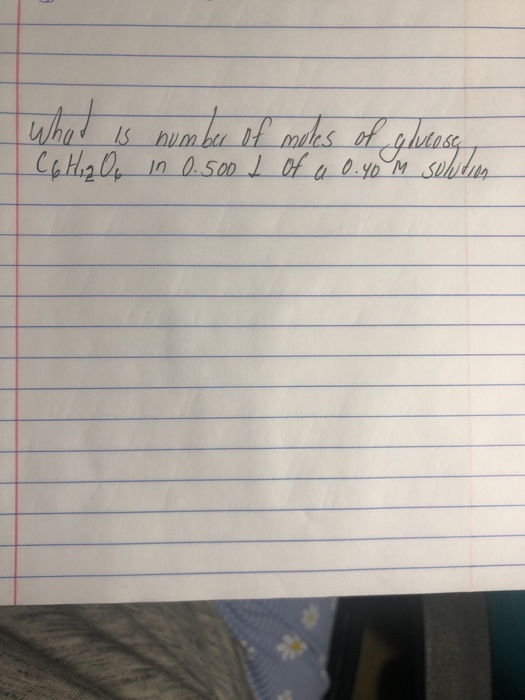 What is number of moles of glucose
C6H12O6 in 0.500 L of a 0.40 M solution